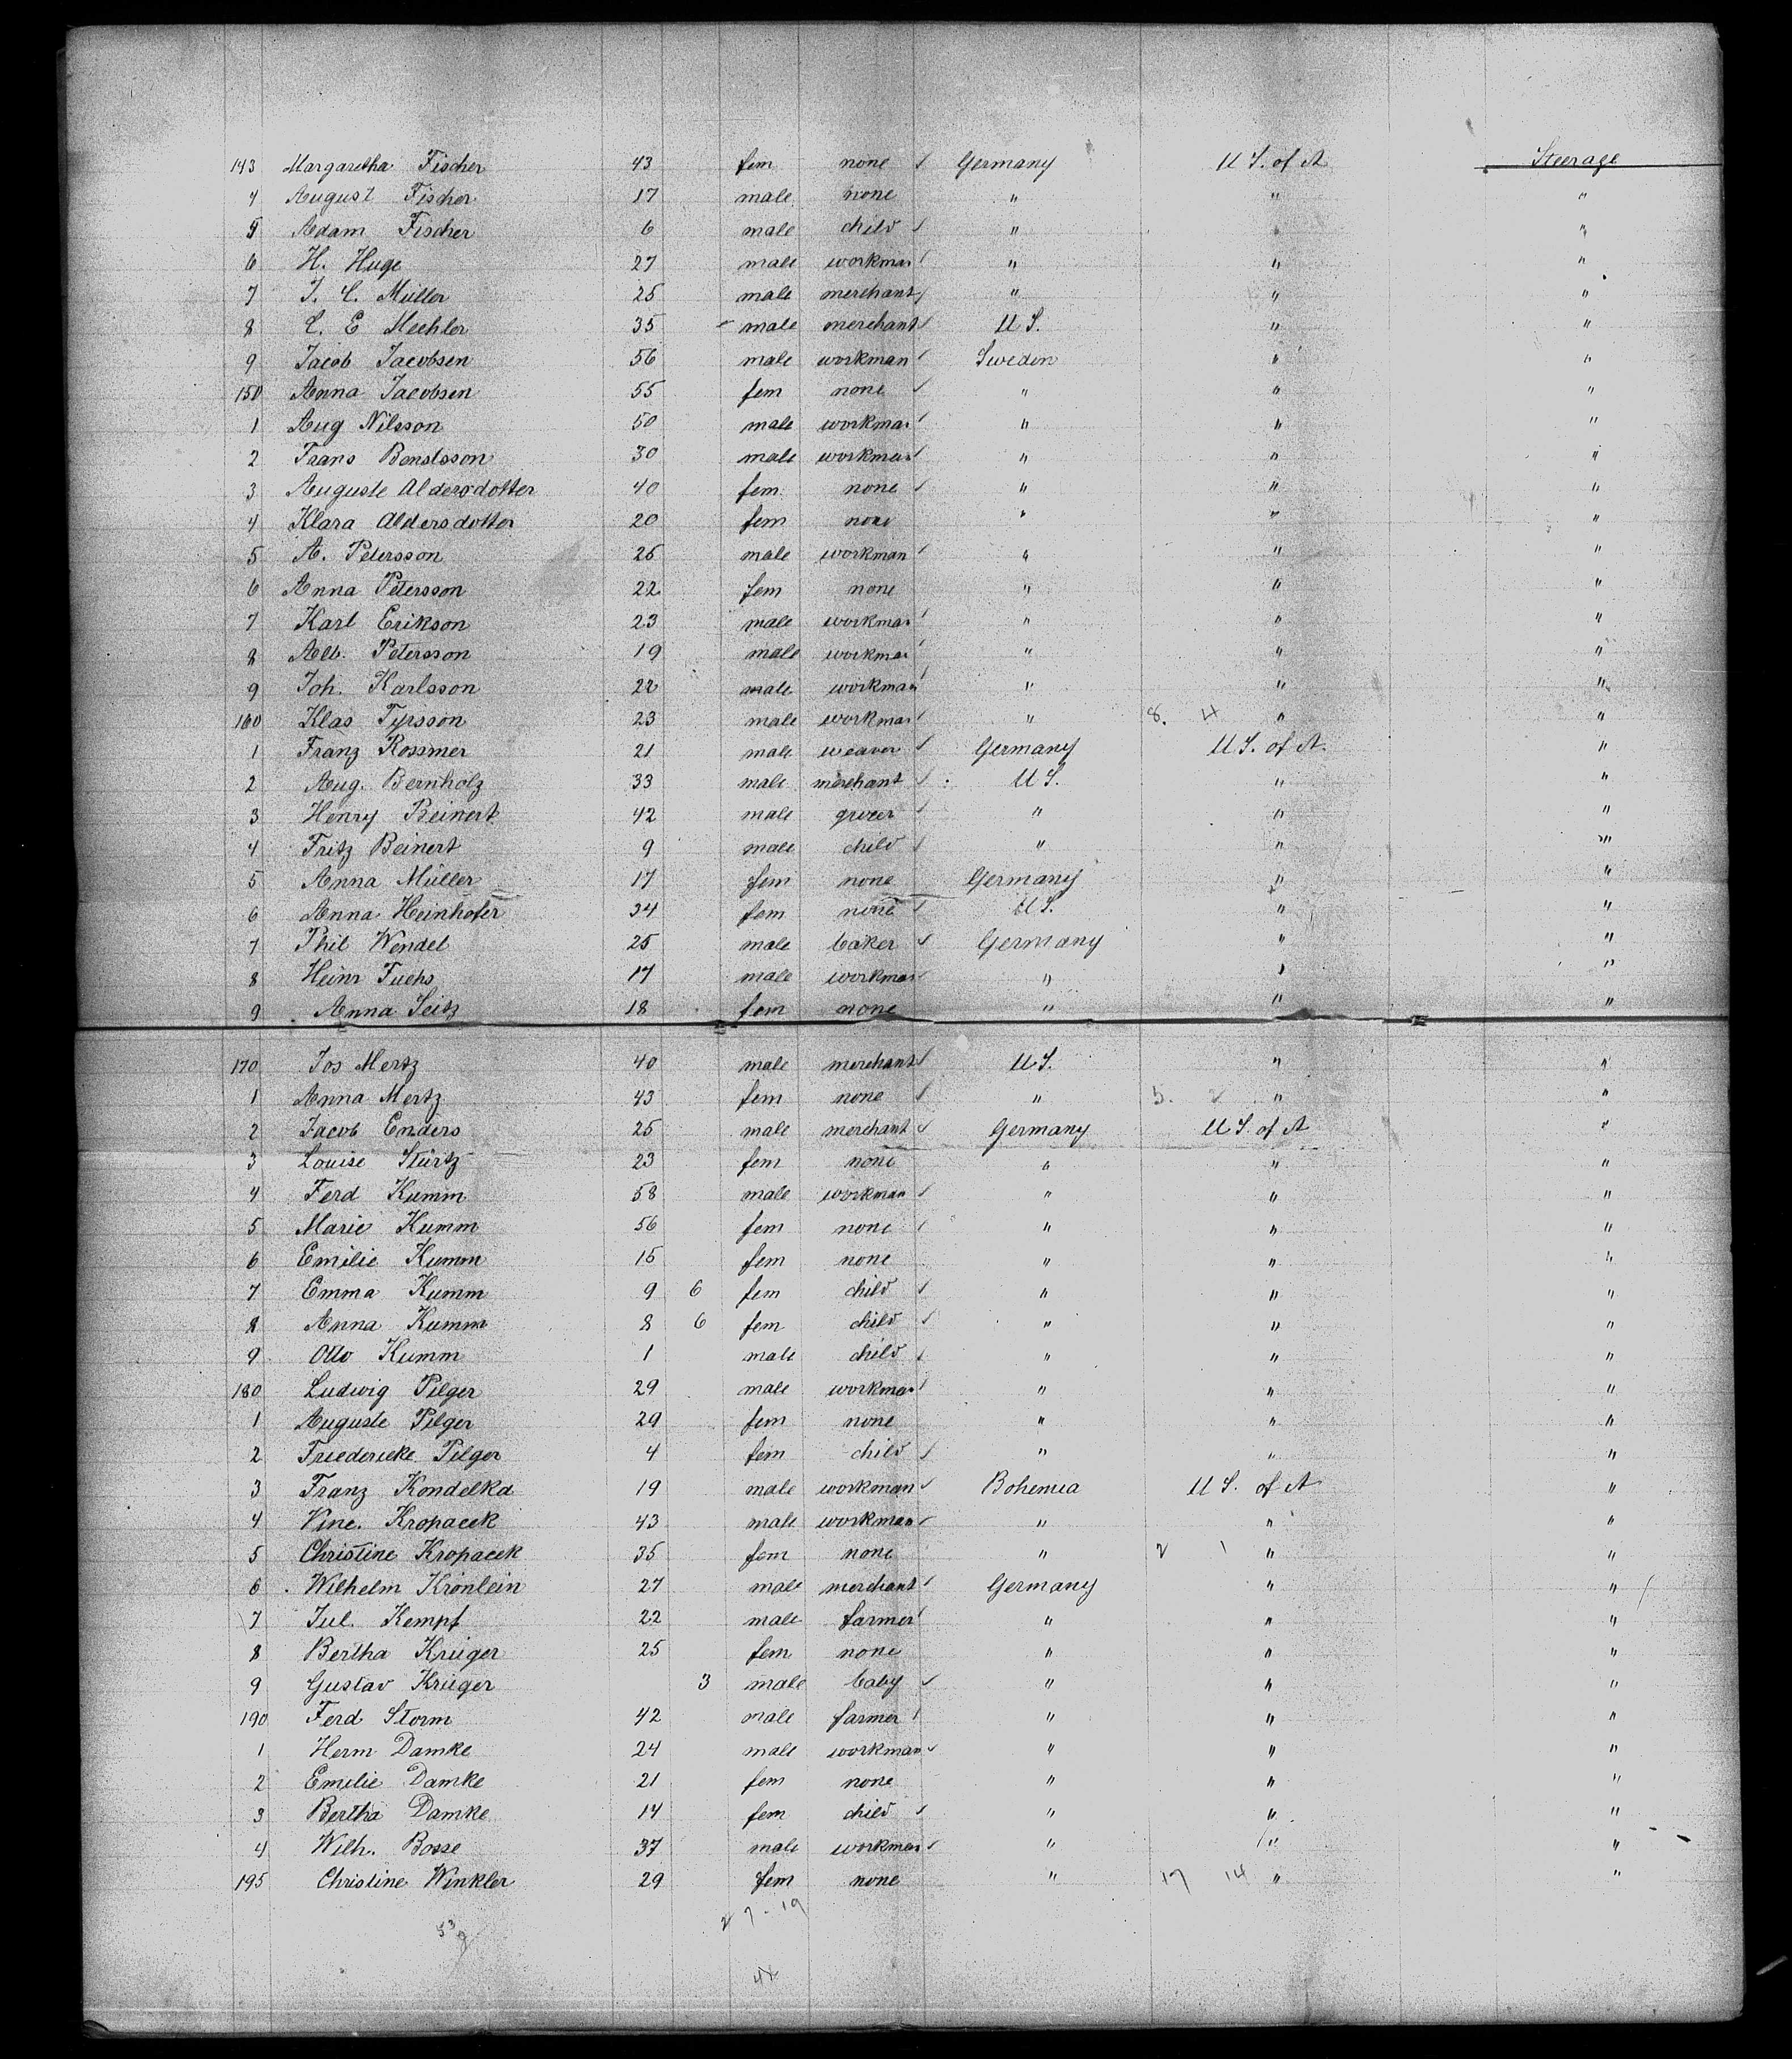 143 Margaretha Fischer 43 fem none Germany U S. of A Steerage
4 August Fischer 17 male none " " "
5 Adam Fischer 6 male child " " "
6 H. Huge 27 male workman " " "
7 J. C. Müller 25 male merchant " " "
8 C. E Mechler 35 male merchant U S. " "
9 Jacob Jacobsen 56 male workman Sweden " "
150 Anna Jacobsen 55 fem none " " "
1 Aug Nilsson 50 male workman " " "
2 Frans Bendsson 30 male workman " " "
3 Auguste Aldersdotter 40 fem none " " "
4 Klara Aldersdotter 20 fem none " " "
5 A. Petersson 25 male workman " " "
6 Anna Petersson 22 fem none " " "
7 Karl Erikson 23 male workman " " "
8 Alb. Petersson 19 male workman " " "
9 Joh. Karlsson 22 male workman " " "
160 Klas Tyrsson 23 male workman " 8. 4 " "
1 Franz Rossmer 21 male weaver Germany U S. of A. "
2 Aug. Bernholz 33 male merchant U S. " "
3 Henry Beinert 42 male grocer " " "
4 Fritz Beinert 9 male child " " "
5 Anna Müller 17 fem none Germany " "
6 Anna Heinhofer 34 fem none U S. " "
7 Phil Wendel 25 male baker Germany " "
8 Heinr Fuchs 17 male workman " " "
9 Anna Seitz 18 fem none " " "
170 Jos Mertz 40 male merchant U S. " "
1 Anna Mertz 43 fem none " 5. 2 " "
2 Jacob Enders 25 male merchant Germany U S. of A "
3 Louise Stürtz 23 fem none " " "
4 Ferd Kumm 58 male workman " " "
5 Marie Kumm 56 fem none " " "
6 Emilie Kumm 15 fem none " " "
7 Emma Kumm 9 6 fem child " " "
8 Anna Kumm 8 6 fem child " " "
9 Otto Kumm 1 male child " " "
180 Ludwig Pilger 29 male workman " " "
1 Auguste Pilger 29 fem none " " "
2 Friedericke Pilger 4 fem child " " "
3 Franz Kondelka 19 male workman Bohemia U S. of A "
4 Vinc. Kropacek 43 male workman " " "
5 Christine Kropacek 35 fem none " 2 1 " "
6 Wilhelm Krönlein 27 male merchant Germany " "
7 Jul. Kempf 22 male farmer " " "
8 Bertha Krüger 25 fem none " " "
9 Gustav Krüger 3 male baby " " "
190 Ferd Storm 42 male farmer " " "
1 Herm Damke 24 male workman " " "
2 Emilie Damke 21 fem none " " "
3 Bertha Damke 14 fem child " " "
4 Wilh. Bosse 37 male workman " " "
195 Christine Winkler 29 fem none " 17 14 " "
27 - 19